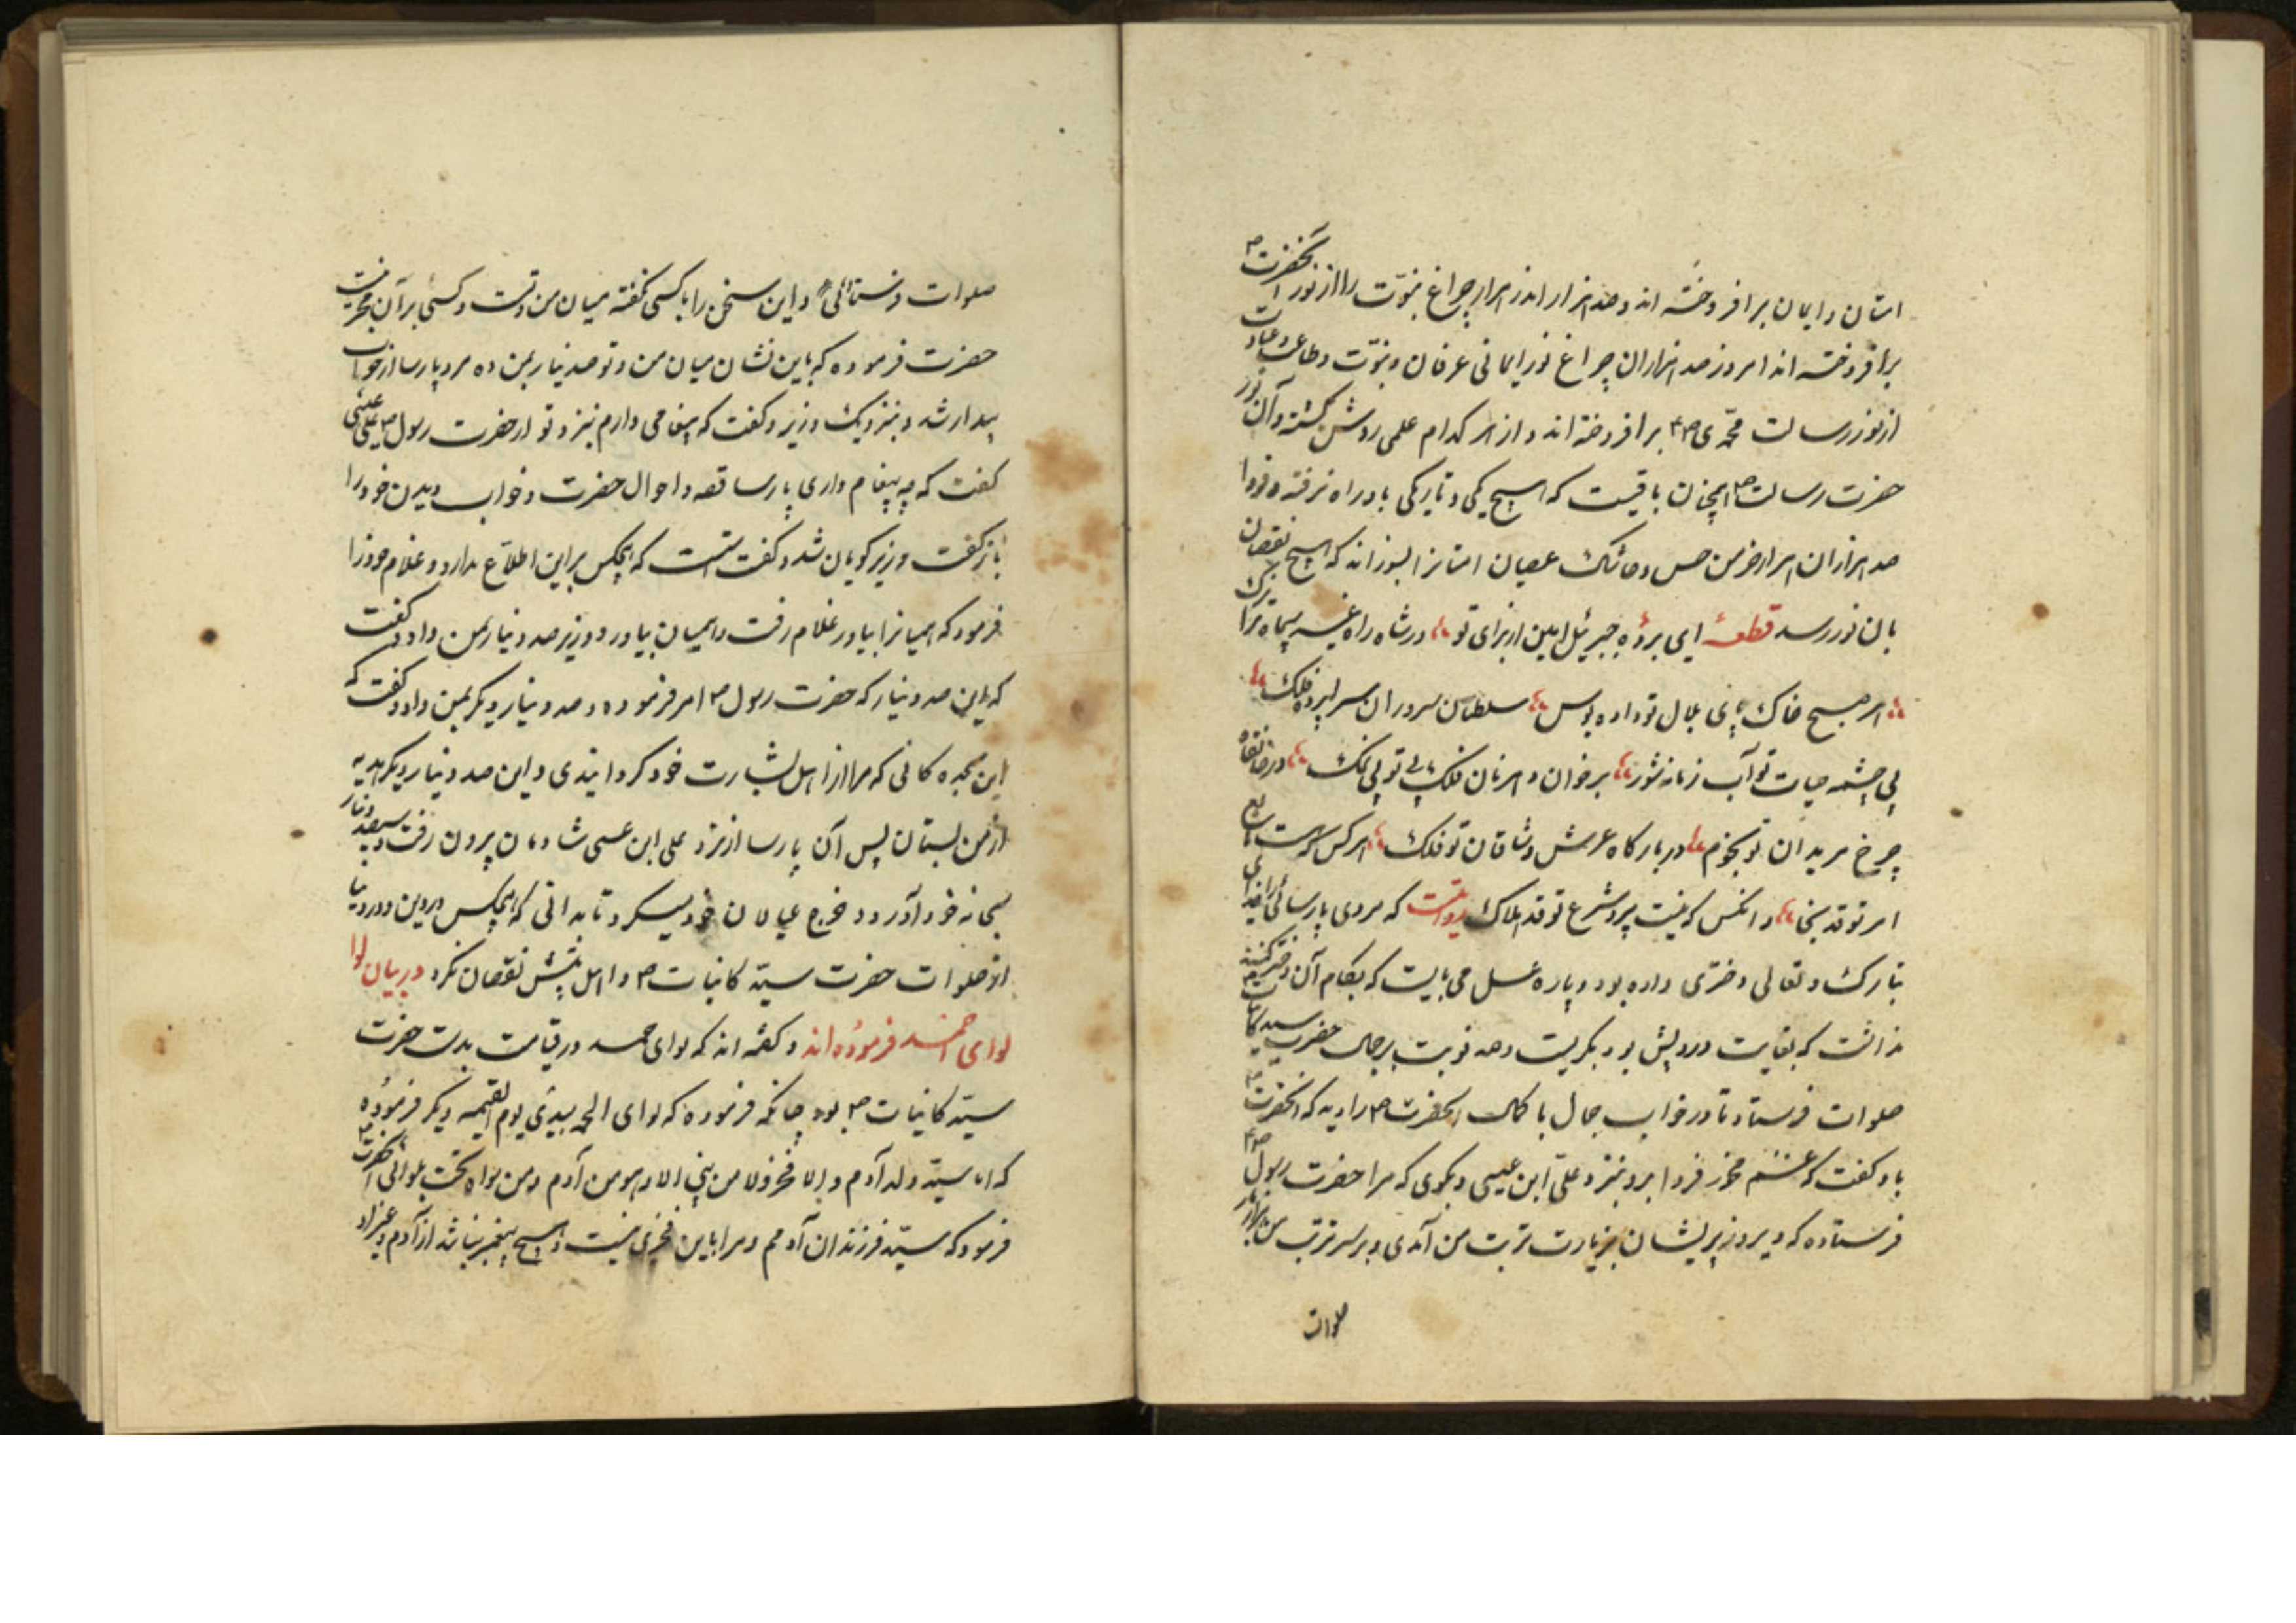 امتان و ایمان برافروخته اند و صد هزار اندر هزار چراغ نبوّت را از نور آنحضرت ص
برافروخته اند امروز صد هزاران چراغ نور ایمانی عرفان و نبوّت و طاعت و عبادت
از نور رسالت محمّدی ص برافروخته اند و از هر کدام علمی روشن گشته و آن نور
حضرت رسالت ص همچنان باقیست که هیچ کمی و تاریکی بدو راه نرفته و فردا
صد هزاران هزار خرمن خس و خاشاک عصیان امتانرا بسوزاند که هیچ نقصان
بان نور رسد قطعهٔ ای برده جبرئیل امین از برای تو در شاه راه غیر سپاه ترا یزک
هر صبح خاک پای بلال تو داده بوس سلطان سروران سراپرده فلک
بی چشمه حیات تو آب زمانه شور بر خوان دهر نان فلک بی تو بی نمک در خانقاه
چرخ مریدان تو نجوم در بارگاه عرش وشاقان تو فلک هر کس که هست تابع
امر تو قد نجا و انکس که نیست پیرو شرع تو قد هلک روایتست که مردی پارسائی را خدای
تبارک و تعالی دختری داده بود و پاره عسل می بایست که بکام آن دختر کنند
نداشت که بغایت درویش بود بگریست و صد نوبت بر جان حضرت سید کاینات
صلوات فرستاد تا در خواب جمال با کمال آنحضرت ص را دید که آنحضرت ص
باو گفت که غم مخور فردا برو بنزد علی ابن عیسی و بگوی که مرا حضرت رسول ص
فرستاده که دیروز پریشان بزیارت تربت من آمدی و بر سر تربت من هزار
صلوات
صلوات فرستادی و این سخن را با کسی نگفته میان من و تست و کسی بر آن
حضرت فرموده که باین نشان میان من و تو صد دینار بمن ده مرد پارسا از خواب
بیدار شد و بنزدیک وزیر و گفت که پیغامی دارم بنزد تو از حضرت رسول ص علی عیسی
گفت که چه پیغام داری پارسا قصه و احوال حضرت و خواب دیدن خود را
باز گفت وزیر گویان شد و گفت که هیچکس براین اطلاع ندارد و غلام خود را
فرمود که همیانرا بیاور غلام رفت و همیان بیاورد و وزیر صد دینار بمن داد و گفت
که این صد دینار که حضرت رسول ص امر فرموده و صد دینار دیگر بمن داد و گفت که
این مژده گانی که مرا از اهل بشارت خود گردانیدی و این صد دینار دیگر هدیه
از من بستان پس آن پارسا از نزد علی ابن عیسی شادمان بیرون رفت و سیصد دینار
بخانه خود آورد و خرج عیالان خود میکرد تا بدانی که هیچکس در دین و در دنیا
از صلوات حضرت سیّد کاینات ص و اهل بیتش نقصان نکرد در بیان لوا
لوای حمد فرموده اند و گفته اند که لوای حمد در قیامت بدست حضرت
سیّد کاینات ص بود چنانکه فرموده که لوای الحمد بیدی یوم القیمه دیگر فرموده
که انا سیّد ولد آدم و لا فخر و لا من نبی الا و هو من آدم و من سواه تحت لوائی آنحضرت ص
فرمود که سیّد فرزندان آدمم و مرا باین فخری نیست و هیچ پیغمبر نباشد از آدم و غیر او